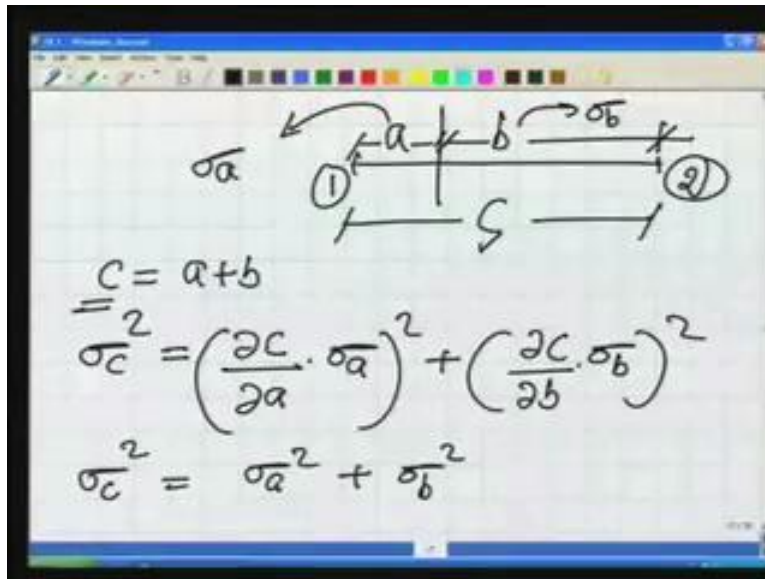 a b σb
σa
① ②
C
C = a+b
σc² = (∂C/∂a · σa)² + (∂C/∂b · σb)²
σc² = σa² + σb²